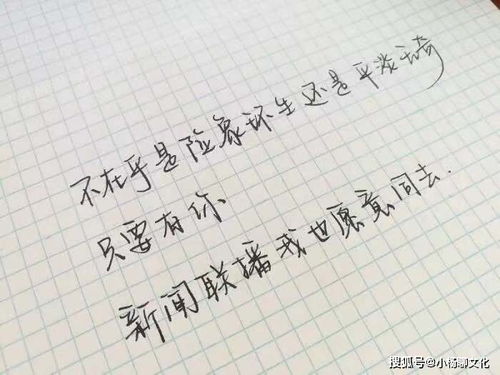 不在乎是险象环生还是平淡无奇
只要有你
新闻联播我也愿意同去.
搜狐号@小杨聊文化